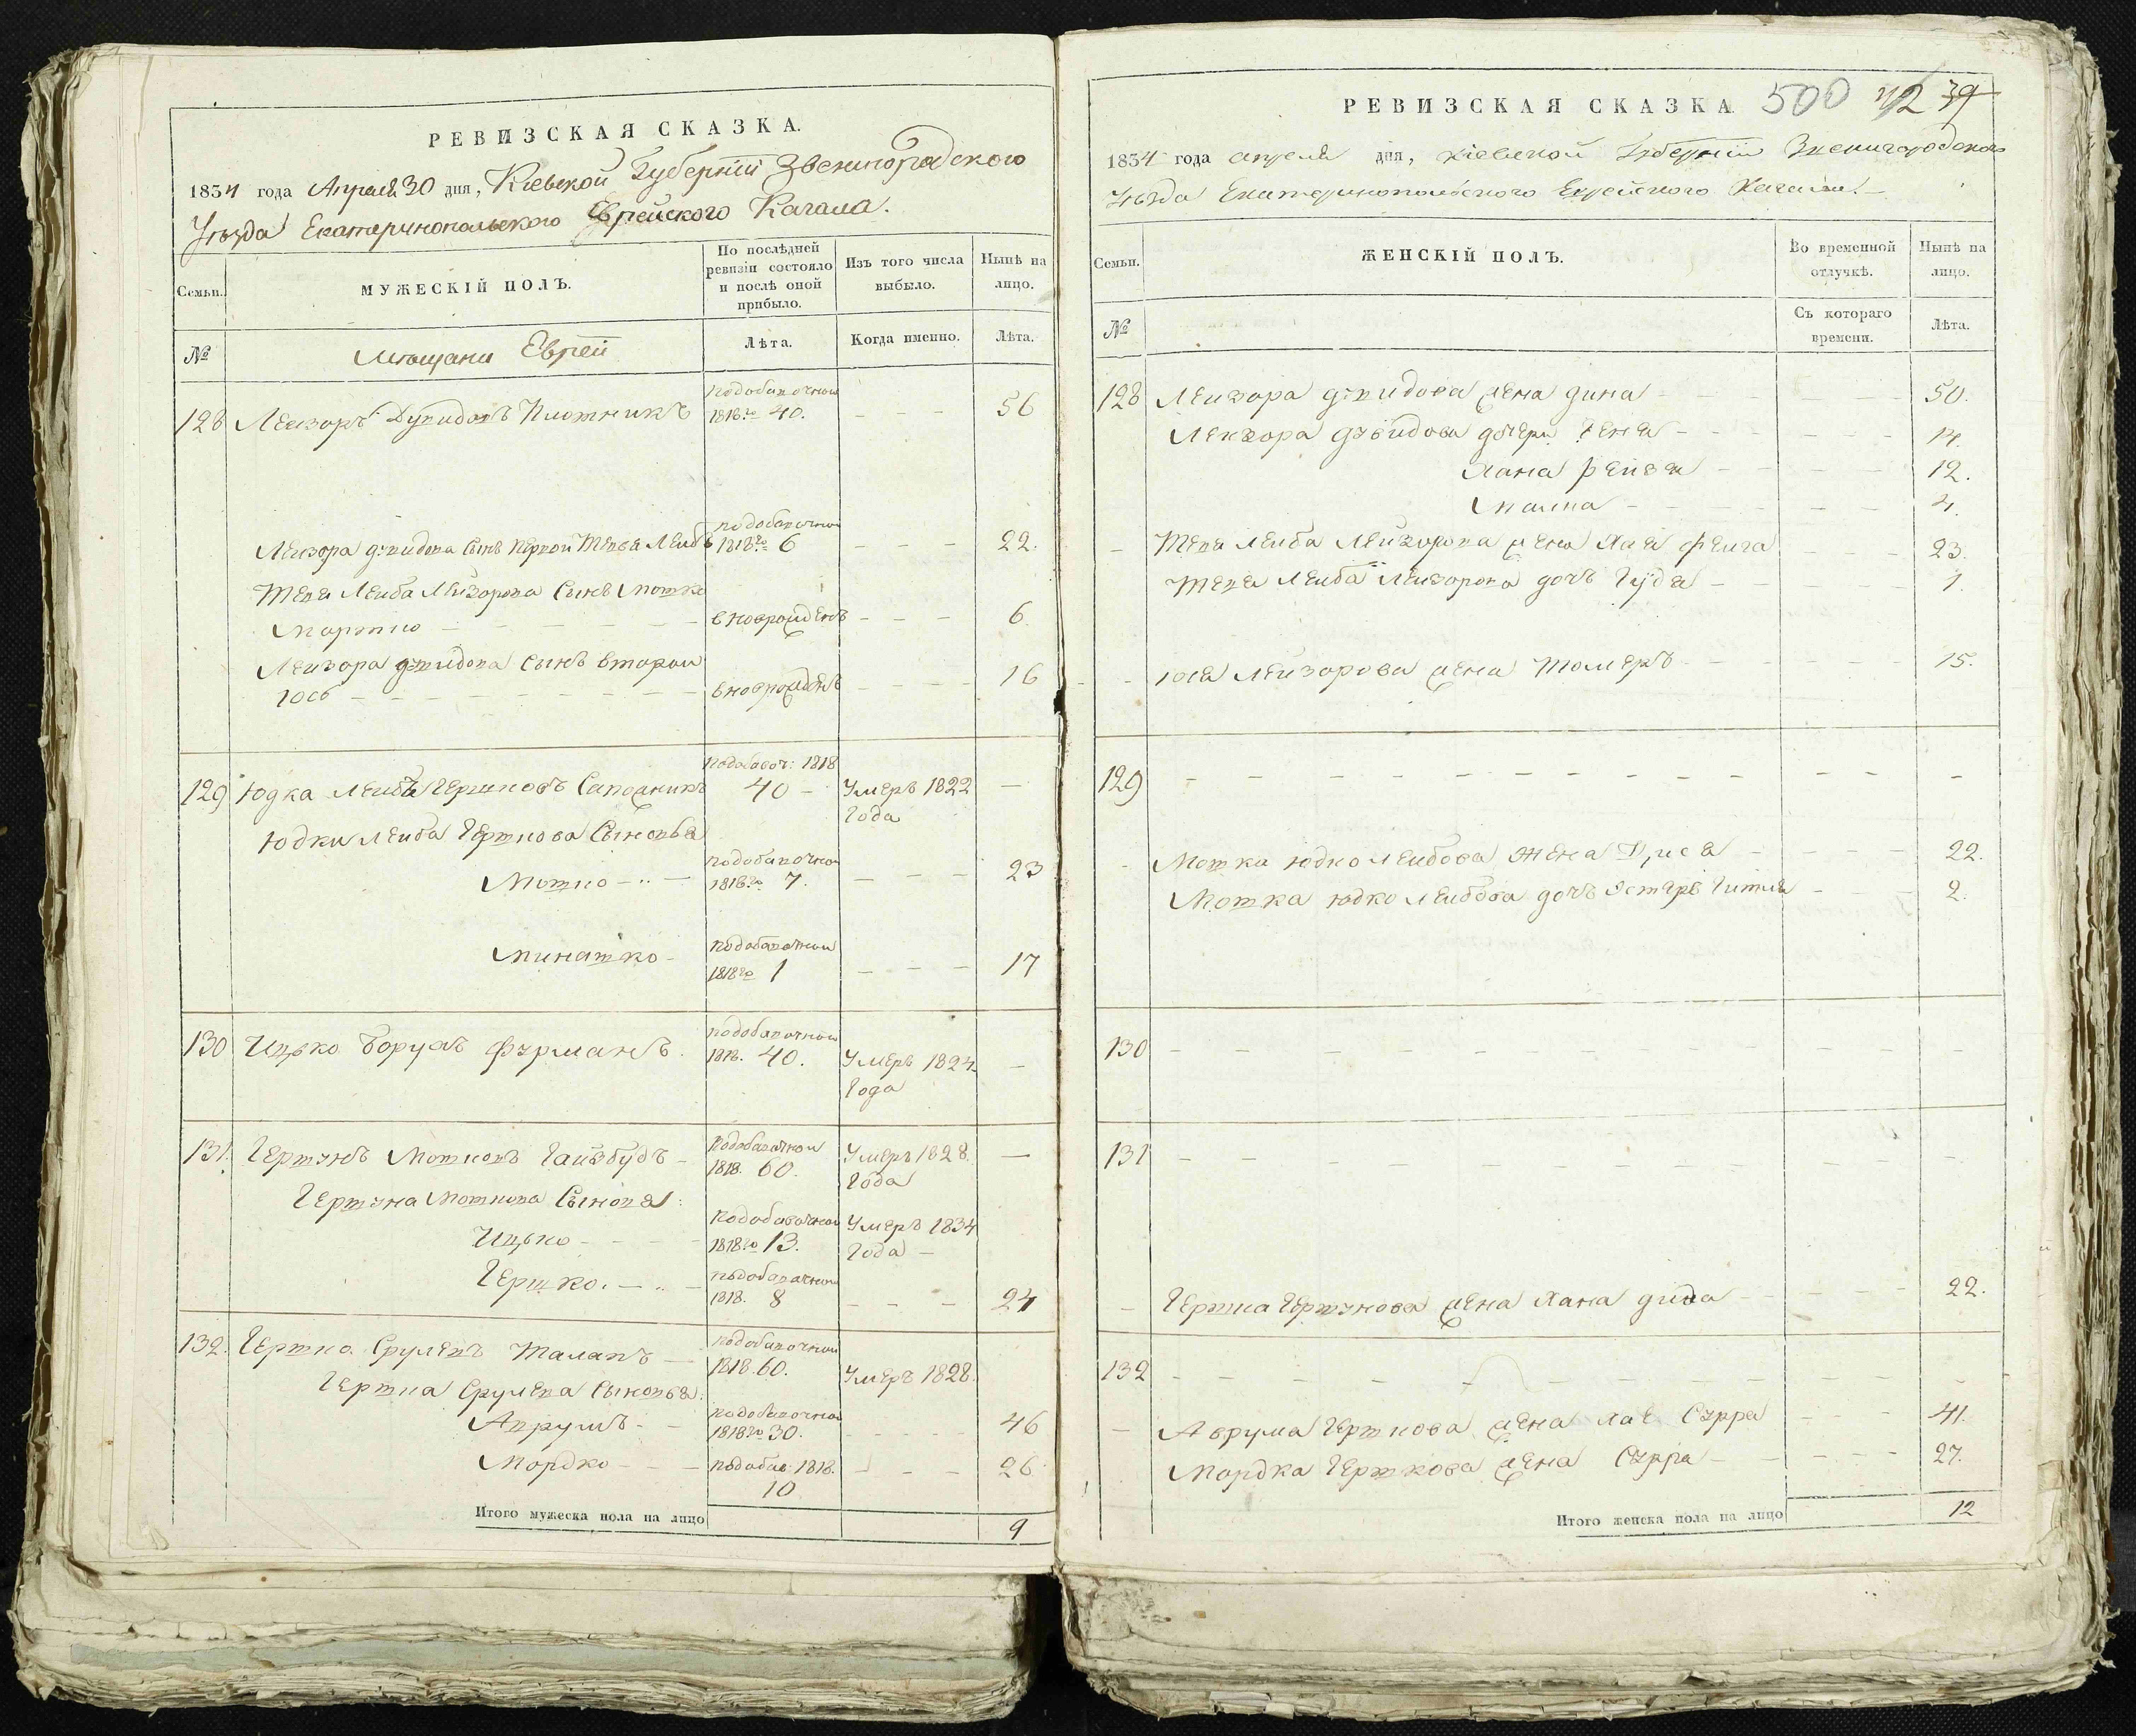 РЕВИЗСКАЯ СКАЗКА.
1834 года Апреля 30 дня, Кіевской Губерніи Звенигородского
Уезда Екатеринопольского Еврейского Кагала.
Семьи.
МУЖЕСКІЙ ПОЛЪ.
По послѣдней ревизіи состояло и послѣ оной прибыло.
Изъ того числа выбыло.
Нынѣ на лицо.
№
Мещани Еврей
Лѣта.
Когда именно.
Лѣта.
128 Лейзоръ Дувидовъ Плотникъ
подобавочной 1818го 40. - - 56
Лейзора дувидова Сынъ Первой Тевья Лейбъ
подобавочной 1818го 6 - - - 22.
Тевя Лейба Лейзорова Сынъ Мотко
Мортко - - - вноврожденъ - - - 6.
Лейзора дувидова Сынъ второй
Юсь - - - вноврожденъ - - - 16
129 Юдка Лейба Гершковъ Сапожникъ
подобавоч: 1818 40 - Умеръ 1822 Года -
Юдки Лейба Гершкова Сыновья
Мотко - подобавочной 1818го 7. - - - 23
Минашко - подобавочной 1818го 1 - - - 17
130 Ицько Борухъ Фурманъ.
подобавочной 1818. 40. Умеръ 1824 Года -
131. Гершунъ Мотковъ -
подобавочной 1818. 60. Умеръ 1828. Года -
Гершуна Моткова Сыновья:
Ицько - - - подобавочной 1818го 13. Умеръ 1834 Года -
Гершко. - подобавочной 1818. 8 - - - 24
132. Гершко Срулевъ -
подобавочной 1818. 60. Умеръ 1828.
Гершка Срулева Сыновья:
Аврумъ - - подобавочной 1818го 30. - - - 46
Мордко - - - подобав: 1818. 10 - - - 26
Итого мужеска пола на лицо 9
РЕВИЗСКАЯ СКАЗКА 500 42 39
1834 года апреля дня, Кіевской Губерніи Звенигородского
Уезда Екатеринопольского Еврейского Кагала.
Семьи.
ЖЕНСКІЙ ПОЛЪ.
Во временной отлучкѣ.
Нынѣ на лицо.
№
Съ котораго времени.
Лѣта.
128 Лейзора дувидова жена дина - - - 50.
Лейзора дувидова дочери Геня - - - 14.
Хана рейзя - - - 12.
Малка - - - 4.
- Тевя Лейба Лейзорова жена Хая фейга - - - 23.
Тевя Лейба Лейзорова дочь Гудя - - - 1.
- Юся Лейзорова жена Томеръ - - - 15.
129 - - - -
- Мотка юдко лейбова жена Фрися - - - 22.
Мотка юдко лейбова дочь Эстеръ Гитля - - - 2.
130 - - - -
131 - - - -
- Гершка Гершунова жена Хана дина - - - 22.
132 - - - -
- Аврума Гершкова жена Хае Сурра - - - 41.
Мордка Гершкова жена Сурра - - - 27.
Итого женска пола на лицо 12